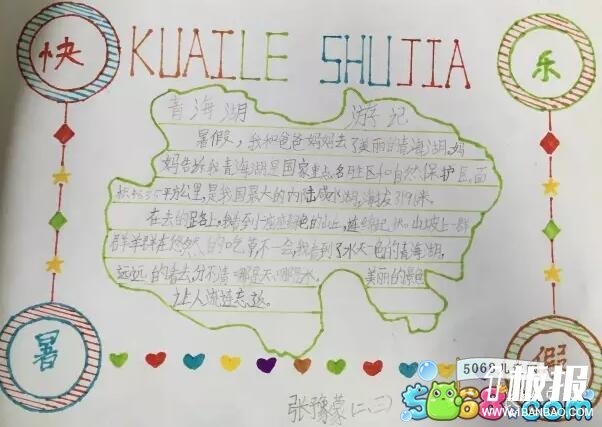 快 KUAILE SHUJIA 乐
青海湖 游记
暑假,我和爸爸妈妈去了美丽的青海湖。妈
妈告诉我青海湖是国家重点名胜区和自然保护区,面
平方公里,是我国最大的内陆咸水湖,海拔319米。
在去的路上,我看到一座座绿色的山,连绵起伏。山坡上一群
群羊群在悠然的吃草。不一会,我看到了水天一色的青海湖。
远远的看去,分不清哪是天,哪是水。美丽的景色
让人流连忘返。
暑 假
张豫蒙(二、三)
5068儿
5068.com
板报
WWW.1BANBAO.COM